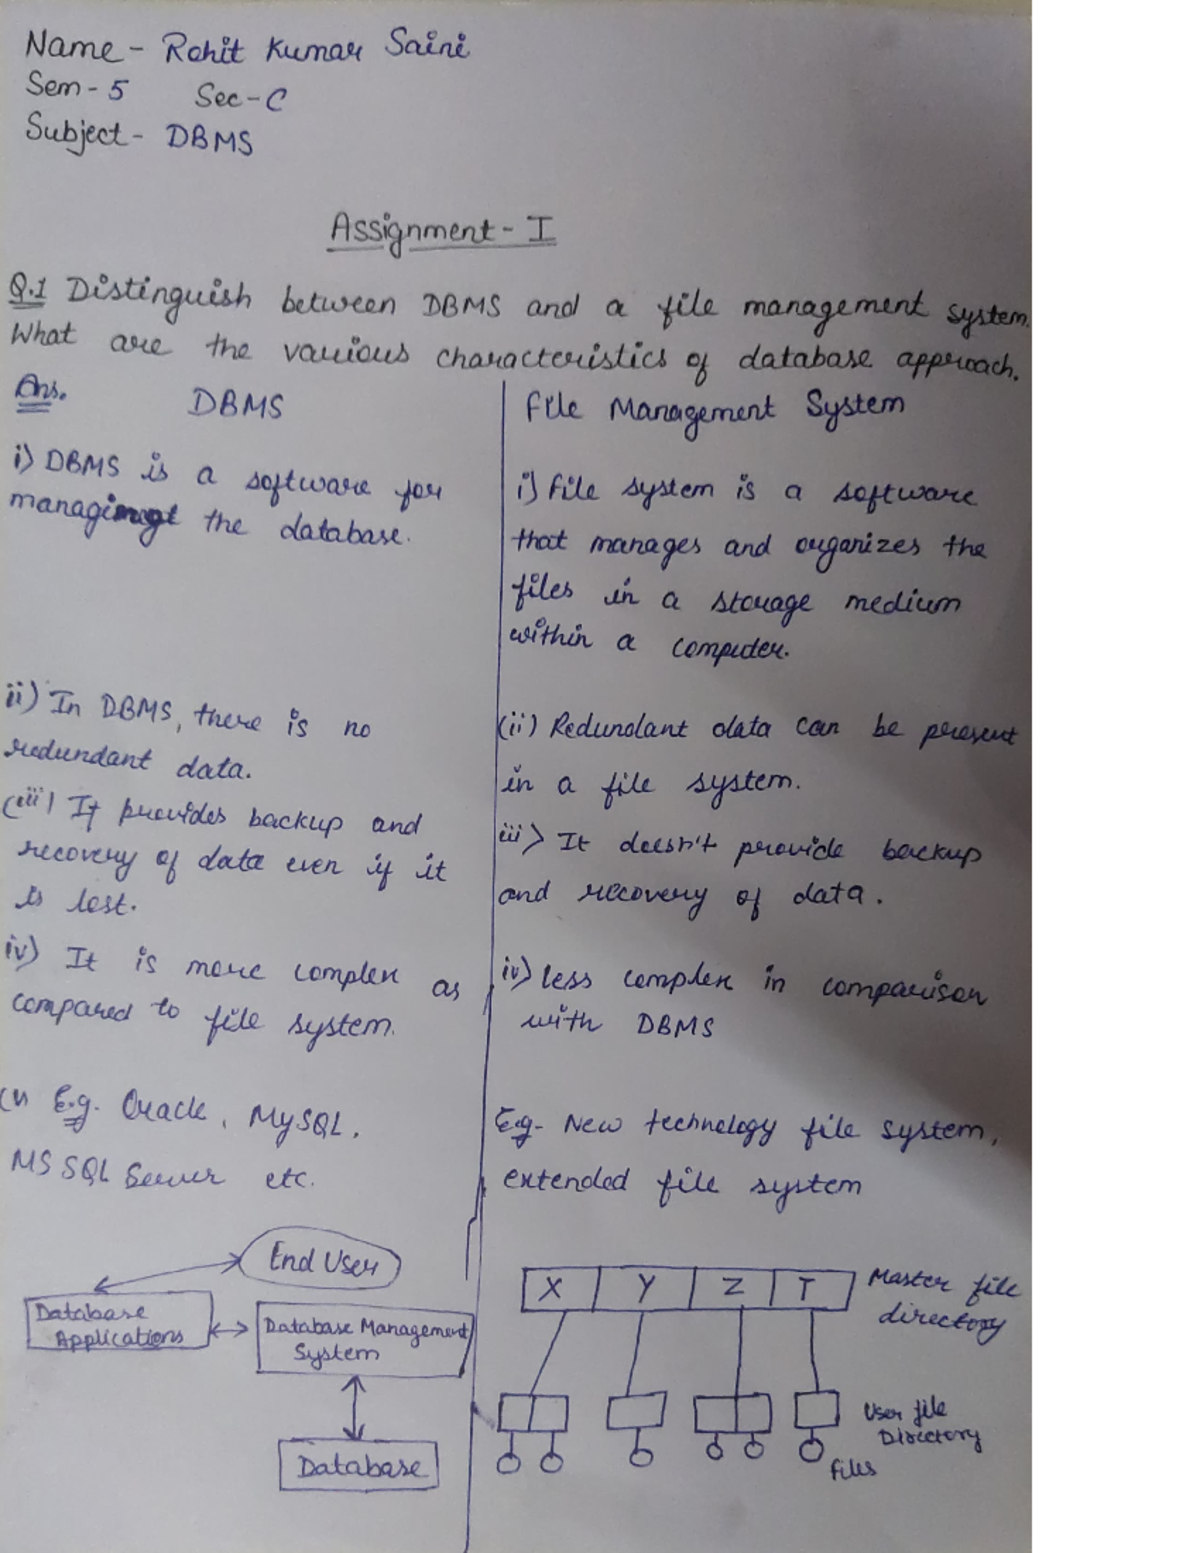 Name - Rohit Kumar Saini
Sem - 5 Sec - C
Subject - DBMS
Assignment - I
Q.1 Distinguish between DBMS and a file management system.
What are the various characteristics of database approach.
Ans. DBMS
i) DBMS is a software for
the database.
ii) In DBMS, there is no
redundant data.
(iii) It provides backup and
recovery of data even if it
is lost.
iv) It is more complex as
compared to file system.
(v) E.g. Oracle, MySQL,
MS SQL Server etc.
End User
Database
Applications
Database Management
System
Database
File Management System
i) File system is a software
that manages and organizes the
files in a storage medium
within a computer.
(ii) Redundant data can be present
in a file system.
iii) It doesn't provide backup
and recovery of data.
iv) Less complex in comparison
with DBMS
E.g- New technology file system,
extended file system
X Y Z T
Master file
directory
User file
Directory
Files